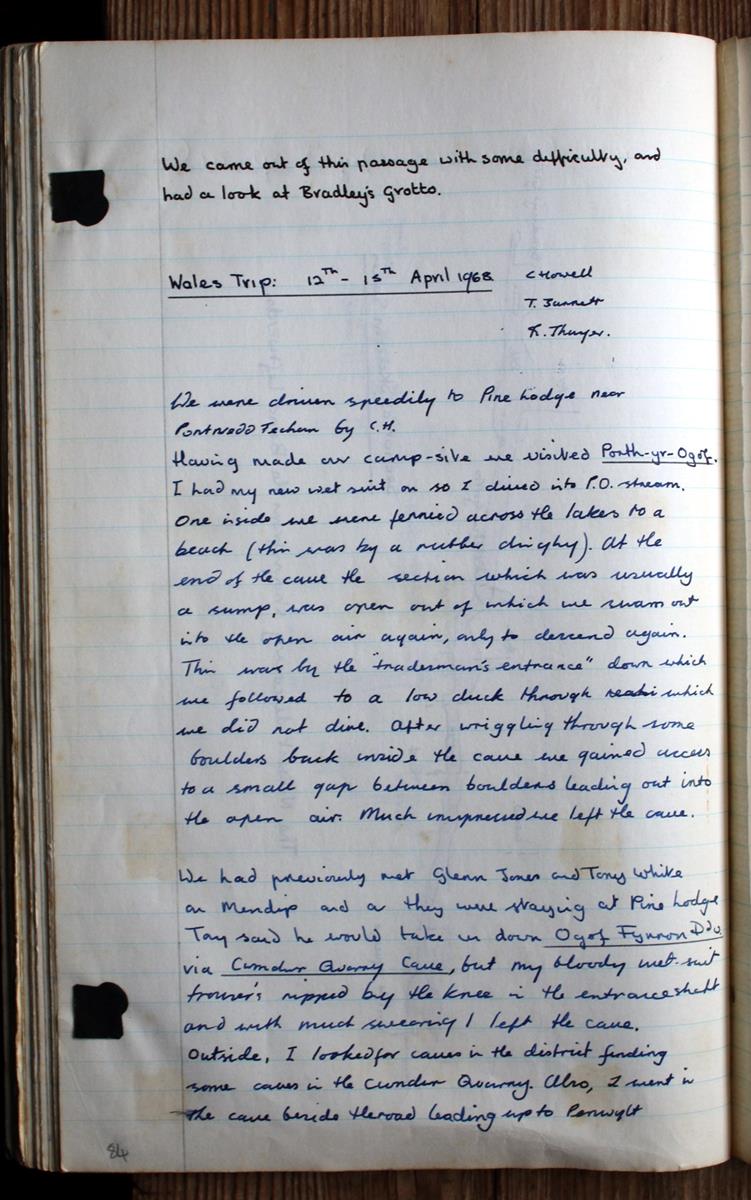 We came out of this passage with some difficulty, and
had a look at Bradley's Grotto.
Wales Trip: 12Th - 15Th April 1968
C Howell
T. Barrett
K. Thuyer.
We were driven speedily to Pine Lodge near
Pontnedd Fechan by C.H.
Having made our camp-site we visited Porth-yr-Ogof.
I had my new wet suit on so I dived into P.O. stream.
One inside we were ferried across the lakes to a
beach (this was by a rubber dinghy). At the
end of the cave the section which was usually
a sump, was open out of which we swam out
into the open air again, only to descend again.
This was by the "tradesman's entrance" down which
we followed to a low duck through which
we did not dive. After wriggling through some
boulders back inside the cave we gained access
to a small gap between boulders leading out into
the open air. Much unimpressed we left the cave.
We had previously met Glenn Jones and Tony White
on Mendip and as they were staying at Pine Lodge
Tony said he would take us down Ogof Fynnon Ddu
via Cwmdwr Quarry Cave, but my bloody wet-suit
trouser's ripped by the knee in the entrance shaft
and with much swearing I left the cave.
Outside, I looked for caves in the district finding
some caves in the Cwmdwr Quarry. Also, I went in
the cave beside the road leading up to Penwyllt
84